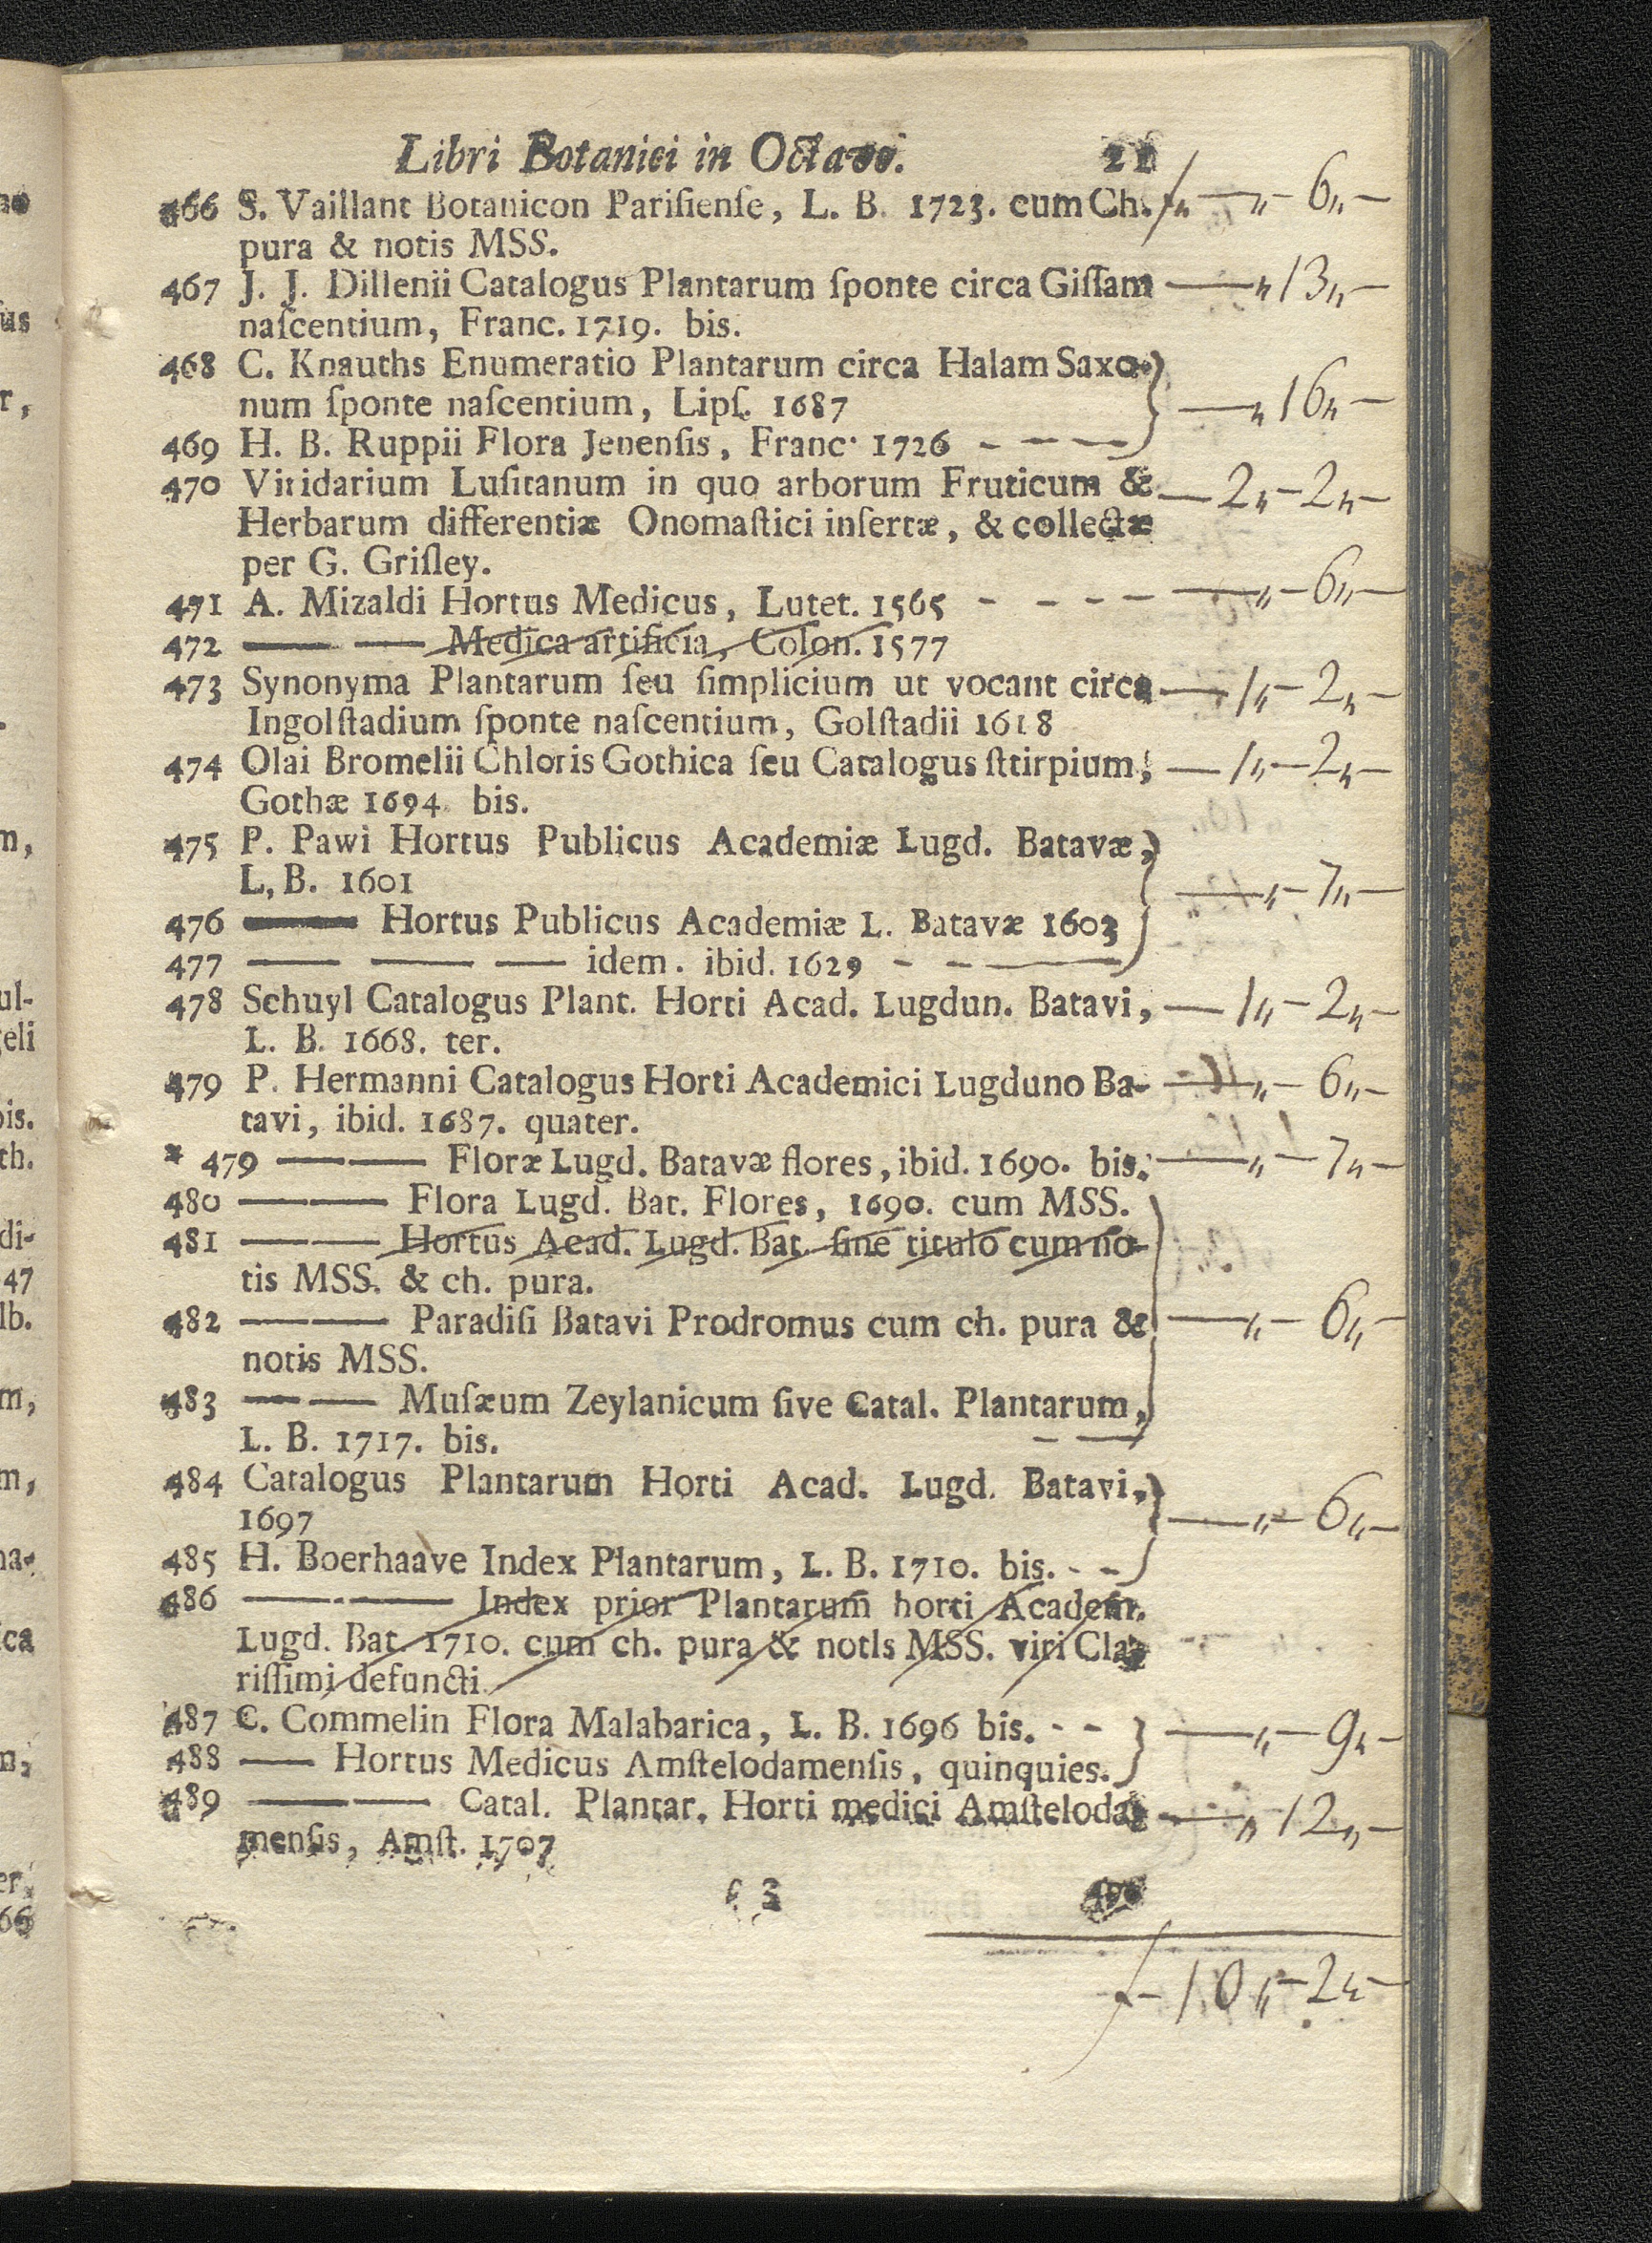 Libri Botanici in Octavo. 21
466 S. Vaillant Botanicon Parisiense, L. B. 1723. cum Ch. ƒ„ — „ — 6„ —
pura & notis MSS.
467 J. J. Dillenii Catalogus Plantarum ſponte circa Giſſam — „ 13„ —
naſcentium, Franc. 1719. bis.
468 C. Knauths Enumeratio Plantarum circa Halam Saxo-
num ſponte naſcentium, Lipſ. 1687 — „ 16„ —
469 H. B. Ruppii Flora Jenenſis, Franc. 1726 - - - -
470 Viridarium Luſitanum in quo arborum Fruticum & — 2„ — 2„ —
Herbarum differentiæ Onomaſtici inſertæ, & collectæ
per G. Griſley.
471 A. Mizaldi Hortus Medicus, Lutet. 1565 - - - - — „ — 6„ —
472 —— —— Medica artificia, Colon. 1577
473 Synonyma Plantarum ſeu ſimplicium ut vocant circa — 1„ — 2„ —
Ingolſtadium ſponte naſcentium, Golſtadii 1618
474 Olai Bromelii Chloris Gothica ſeu Catalogus ſttirpium, — 1„ — 2„ —
Gothæ 1694. bis.
475 P. Pawi Hortus Publicus Academiæ Lugd. Batavæ,
L, B. 1601 — „ — 7„ —
476 —— Hortus Publicus Academiæ L. Batavæ 1603
477 —— —— —— idem. ibid. 1629 - - —
478 Schuyl Catalogus Plant. Horti Acad. Lugdun. Batavi, — 1„ — 2„ —
L. B. 1668. ter.
479 P. Hermanni Catalogus Horti Academici Lugduno Ba- — „ — 6„ —
tavi, ibid. 1687. quater.
* 479 —— —— Floræ Lugd. Batavæ flores, ibid. 1690. bis. — „ — 7„ —
480 —— —— Flora Lugd. Bat. Flores, 1690. cum MSS.
481 —— —— Hortus Acad. Lugd. Bat. ſine titulo cum no-
tis MSS. & ch. pura.
482 —— —— Paradiſi Batavi Prodromus cum ch. pura & — „ — 6„ —
notis MSS.
483 —— —— Muſæum Zeylanicum ſive Catal. Plantarum,
L. B. 1717. bis. - —
484 Catalogus Plantarum Horti Acad. Lugd. Batavi,
1697 — „ — 6„ —
485 H. Boerhaave Index Plantarum, L. B. 1710. bis. - -
486 —— —— Index prior Plantarum horti Academ.
Lugd. Bat. 1710. cum ch. pura & notls MSS. viri Cla-
riſſimi defuncti.
487 C. Commelin Flora Malabarica, L. B. 1696 bis. - - — „ — 9„ —
488 —— Hortus Medicus Amſtelodamenſis, quinquies.
489 —— —— Catal. Plantar. Horti medici Amſteloda- — „ 12„ —
menſis, Amſt. 1707
3 490
ƒ — 10„ — 2„ —